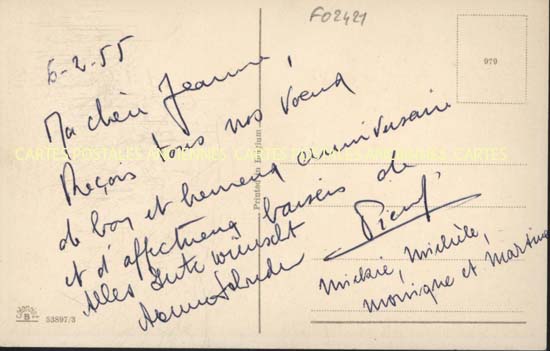 F02421
6-2-55
979
Ma chère Jeanne,
Reçois tous nos voeux
de bon et heureux anniversaire
et d'affectueux baisers de
Pierrot
Alles Gute wünscht
Mickie, Michèle,
Monique et Martine
CARTES POSTALES ANCIENNES CARTES POSTALES ANCIENNES CARTES
Printed in Belgium
B
53897/3